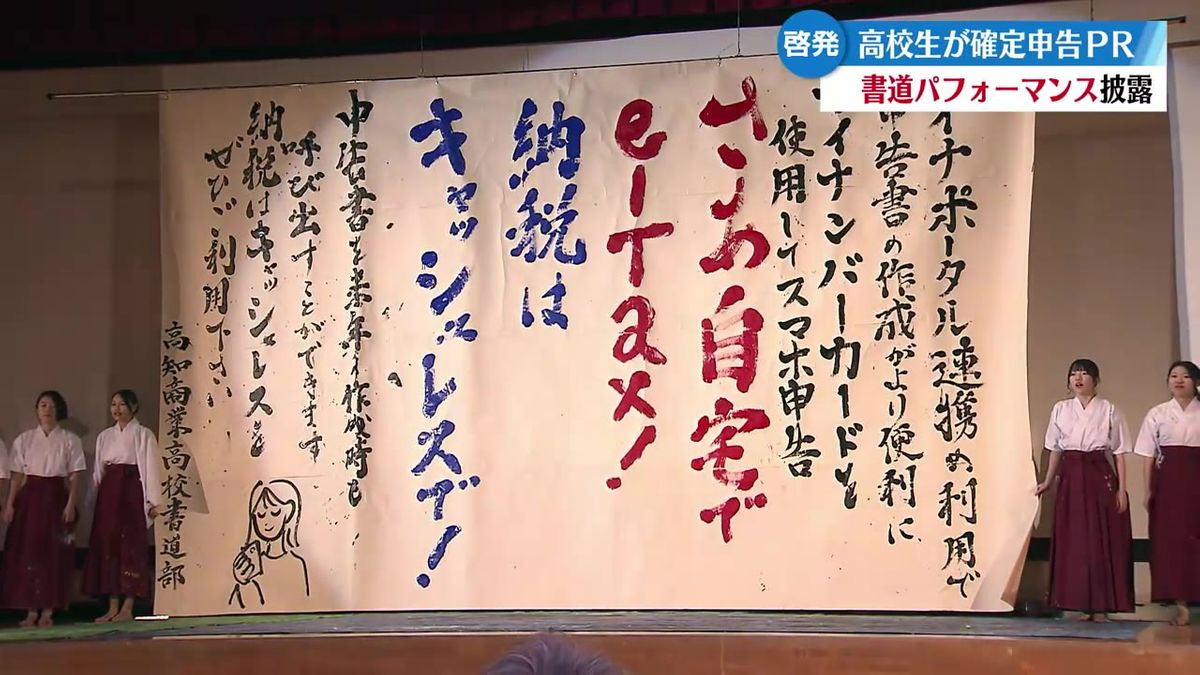 啓発
高校生が確定申告PR
書道パフォーマンス披露
イナポータル連携の利用で
申告書の作成がより便利に
イナンバーカードを
使用してスマホ申告
さあ自宅で
e-Tax!
納税は
キャッシュレスで!
申告書を来年の作成時も
呼び出すことができます
納税はキャッシュレスを
ぜひご利用下さい
高知商業高校書道部